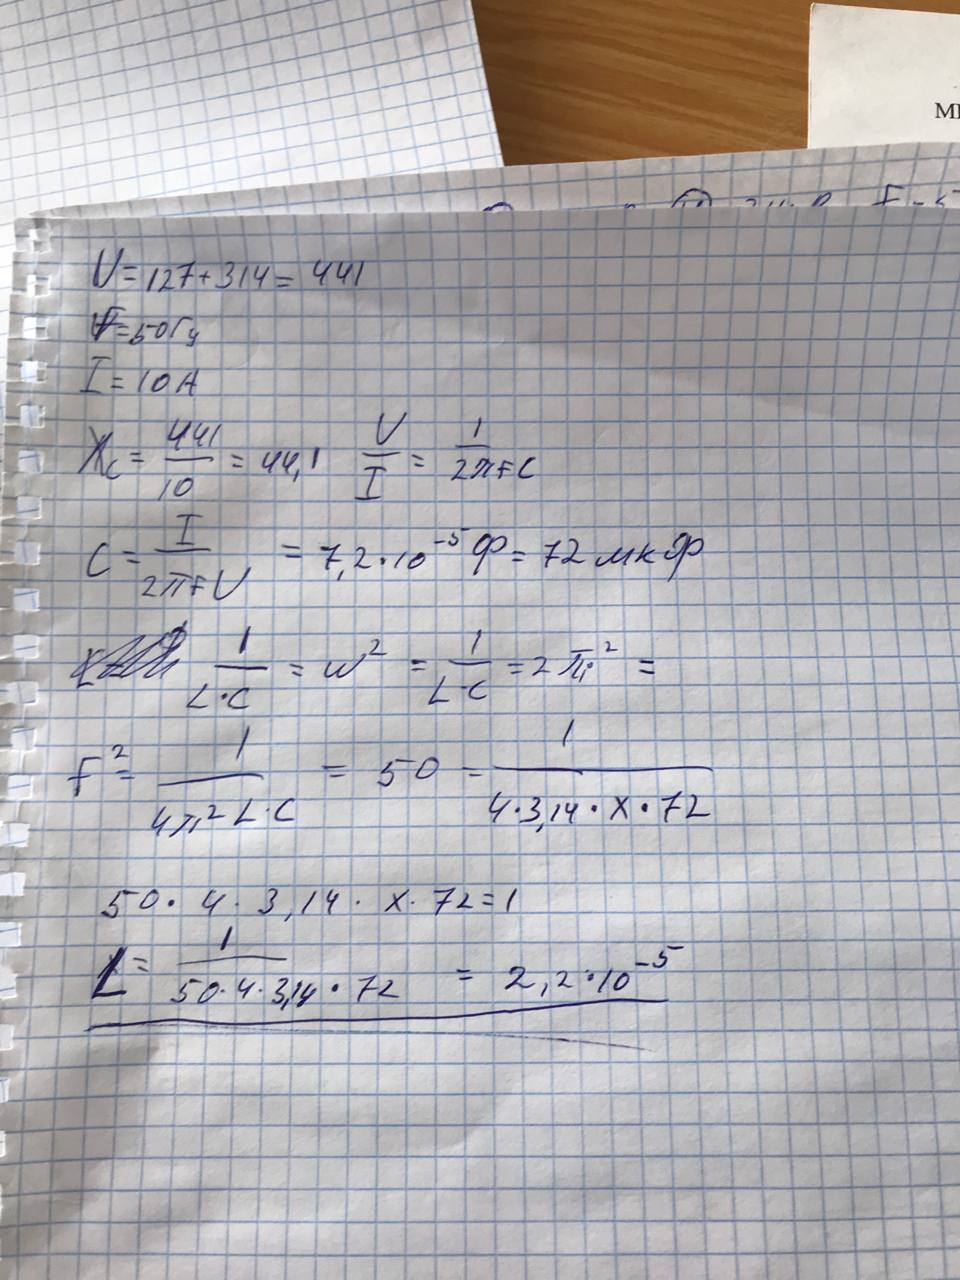 МИ
U = 127 + 314 = 441
F = 50 Гц
I = 10 А
Xc = 441/10 = 44,1 U/I = 1/2πFC
C = I/2πFU = 7,2 · 10⁻⁵ Ф = 72 мкФ
1/L·C = w² = 1/L·C = 2π² =
F² = 1/4π²L·C = 50 = 1/4·3,14·x·72
50 · 4 · 3,14 · x · 72 = 1
L = 1/50·4·3,14·72 = 2,2 · 10⁻⁵